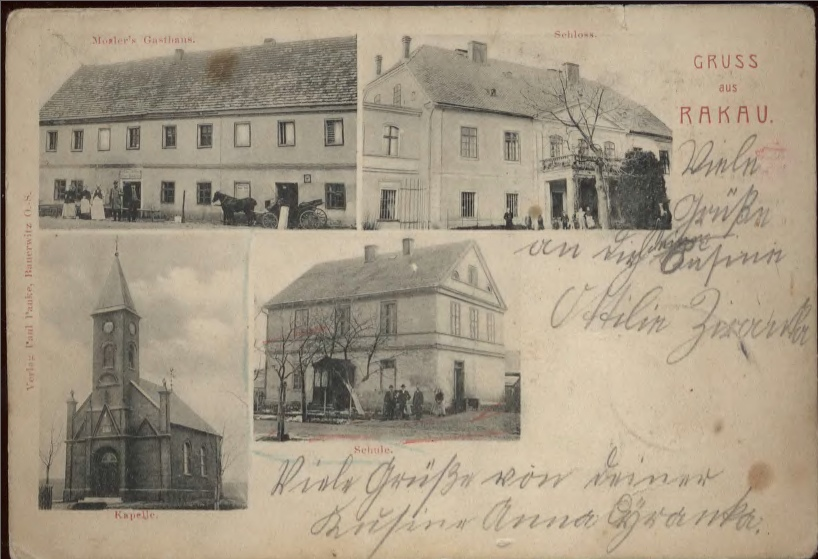 Mosler's Gasthaus.
Schloss.
GRUSS
aus
RAKAU.
Viele
Grüße
an die
Cusine
Ottilie Ziranka
Verlag Paul Panke, Bauerwitz O.-S.
Schule.
Kapelle.
Viele Grüße von deiner
Kusine Anna Cyranka.